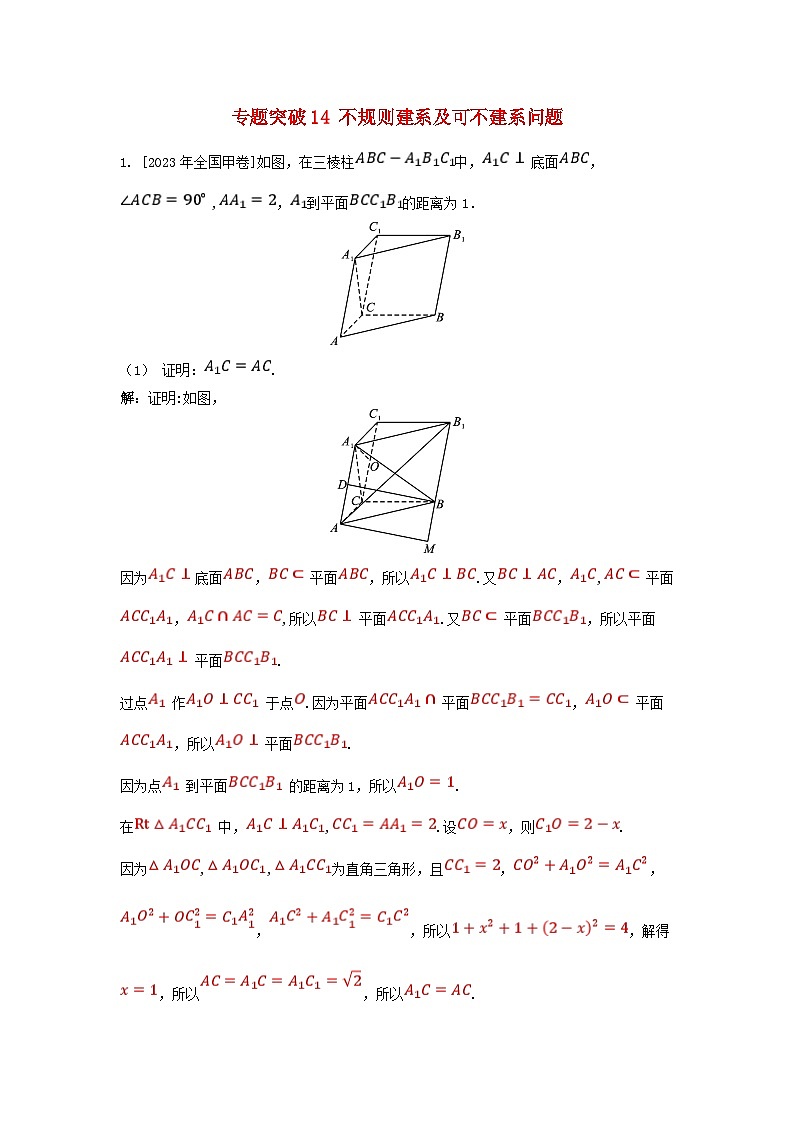 专题突破14 不规则建系及可不建系问题
1. [2023年全国甲卷]如图，在三棱柱ABC－A₁B₁C₁中，A₁C⊥底面ABC，
∠ACB＝90°，AA₁＝2，A₁到平面BCC₁B₁的距离为1.
C₁
B₁
A₁
C
B
A
（1） 证明：A₁C＝AC.
解：证明:如图，
C₁
B₁
A₁
O
D
C
B
A
M
因为A₁C⊥底面ABC，BC⊂平面ABC，所以A₁C⊥BC.又BC⊥AC，A₁C,AC⊂平面
ACC₁A₁，A₁C∩AC＝C,所以BC⊥平面ACC₁A₁.又BC⊂平面BCC₁B₁，所以平面
ACC₁A₁⊥平面BCC₁B₁.
过点A₁ 作A₁O⊥CC₁ 于点O.因为平面ACC₁A₁∩平面BCC₁B₁＝CC₁，A₁O⊂平面
ACC₁A₁，所以A₁O⊥平面BCC₁B₁.
因为点A₁ 到平面BCC₁B₁ 的距离为1，所以A₁O＝1.
在Rt△A₁CC₁ 中，A₁C⊥A₁C₁,CC₁＝AA₁＝2.设CO＝x，则C₁O＝2－x.
因为△A₁OC,△A₁OC₁,△A₁CC₁为直角三角形，且CC₁＝2，CO²＋A₁O²＝A₁C²，
A₁O²＋OC₁²＝C₁A₁²，A₁C²＋A₁C₁²＝C₁C²，所以1＋x²＋1＋(2－x)²＝4，解得
x＝1，所以AC＝A₁C＝A₁C₁＝√2，所以A₁C＝AC.